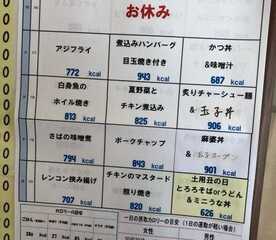 お休み
アジフライ
772 kcal
煮込みハンバーグ
目玉焼き付き
943 kcal
かつ丼
&味噌汁
687 kcal
白身魚の
ホイル焼き
813 kcal
夏野菜と
チキン煮込み
825 kcal
炙りチャーシュー麺
&玉子丼
906 kcal
さばの味噌煮
794 kcal
ポークチャップ
843 kcal
麻婆丼
&玉子スープ
901 kcal
レンコン挟み揚げ
707 kcal
チキンのマスタード
照り焼き
820 kcal
土用丑の日
とろろそばorうどん
&ミニうな丼
626 kcal
一日の摂取カロリーの目安
男性
女性